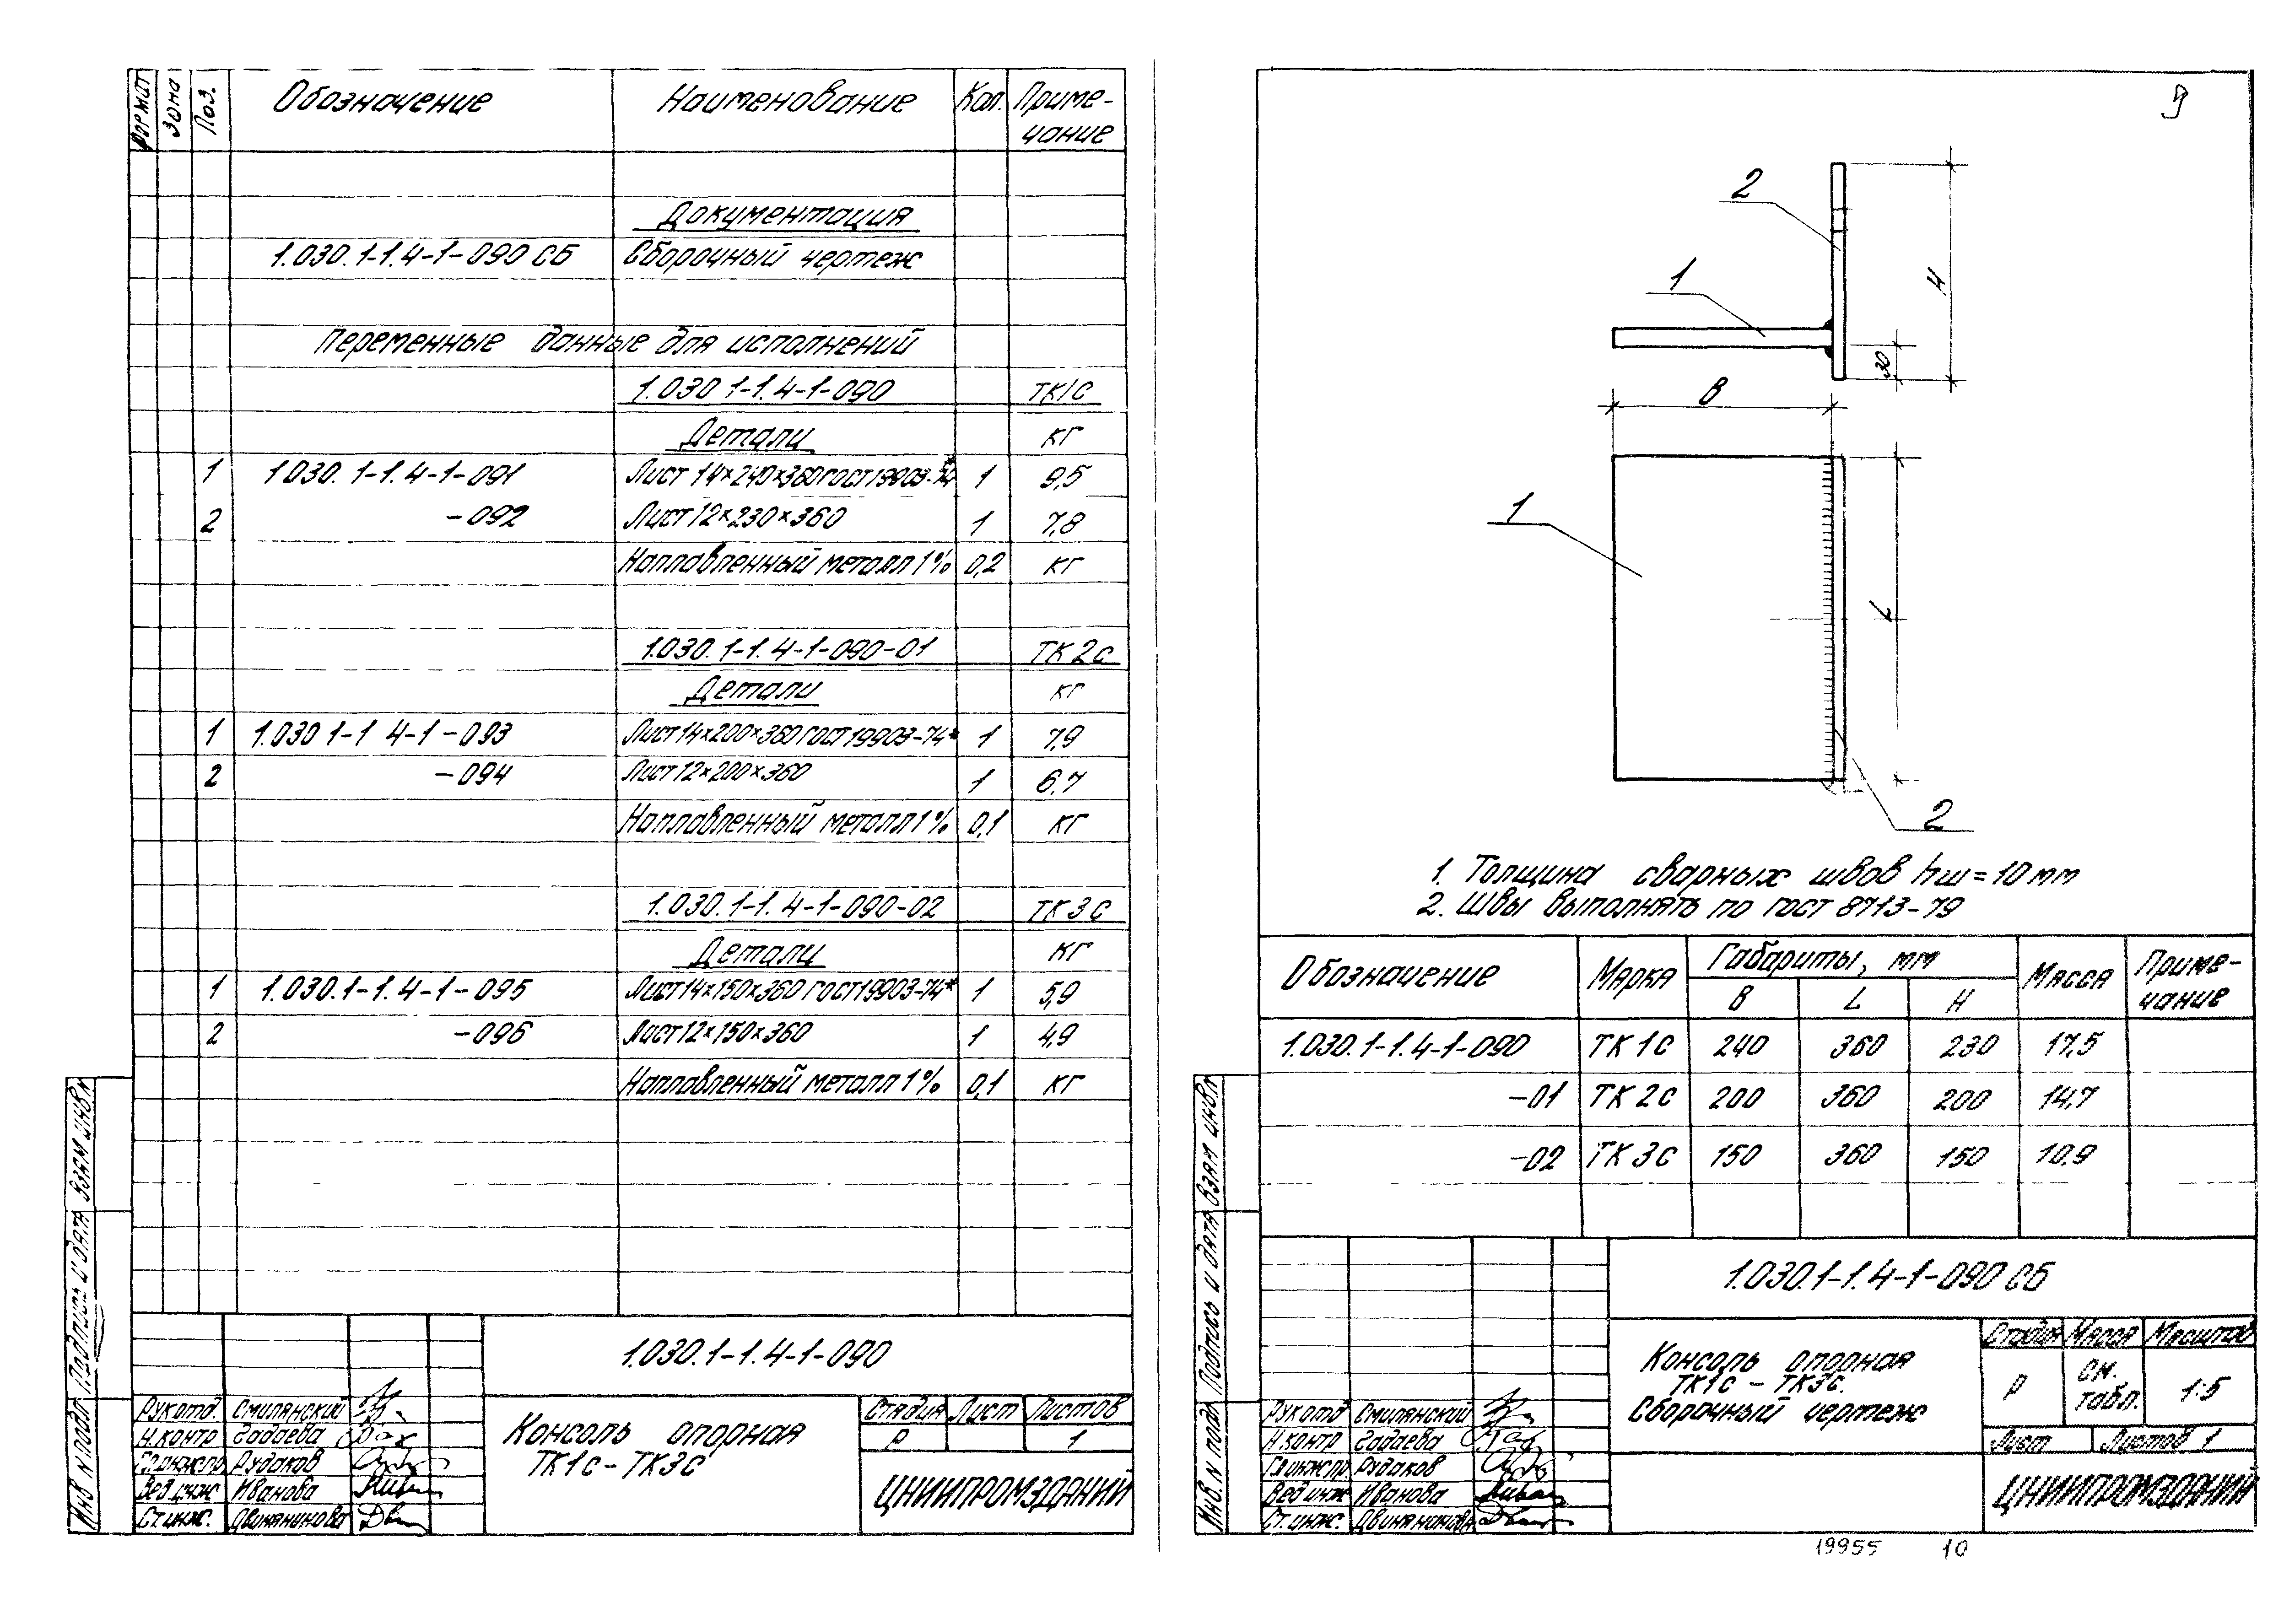 Формат Зона Поз. Обозначение Наименование Кол. Приме-
чание
Документация
1.030.1-1.4-1-090 СБ Сборочный чертеж
Переменные данные для исполнений
1.030 1-1.4-1-090 ТК1С
Детали кг
1 1030.1-1.4-1-091 Лист 14×240×360 ГОСТ 19903-74* 1 9,5
2 -092 Лист 12×230×360 1 7,8
Наплавленный металл 1% 0,2 кг
1.030.1-1.4-1-090-01 ТК2с
Детали кг
1 1.030 1-1 4-1-093 Лист 14×200×360 ГОСТ 19903-74* 1 7,9
2 -094 Лист 12×200×360 1 6,7
Наплавленный металл 1% 0,1 кг
1.030.1-1.4-1-090-02 ТК3С
Детали кг
1 1.030.1-1.4-1-095 Лист 14×150×360 ГОСТ 19903-74* 1 5,9
2 -096 Лист 12×150×360 1 4,9
Наплавленный металл 1% 0,1 кг
Инв N подл Подпись и дата Взам инв.N
1.030.1-1.4-1-090
Рук отд. Смилянский
Н.контр Гадаева
Гл.инж.пр Рудаков
Вед.инж Иванова
Ст инж. Двинянинова
Консоль опорная
ТК1с - ТК3С
Стадия Лист Листов
Р 1
ЦНИИПРОМЗДАНИЙ
9
2
1
H
30
B
1
L
2
1. Толщина сварных швов hш = 10 мм
2. Швы выполнять по ГОСТ 8713-79
Обозначение Марка Габариты, мм Масса Приме-
чание
B L H
1.030.1-1.4-1-090 ТК1С 240 360 230 17,5
-01 ТК2С 200 360 200 14,7
-02 ТК3С 150 360 150 10,9
Инв. N подл Подпись и дата Взам инв.N
1.030.1-1.4-1-090 СБ
Рук отд Смилянский
Н.контр Гадаева
Гл инж.пр Рудаков
Вед инж Иванова
Ст.инж. Двинянинова
Консоль опорная
ТК1с - ТК3с.
Сборочный чертеж
Стадия Масса Масштаб
Р см.
табл. 1:5
Лист Листов 1
ЦНИИПРОМЗДАНИЙ
19955 10